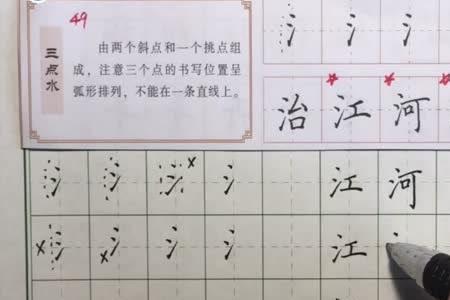 49
三点水
由两个斜点和一个挑点组
成，注意三个点的书写位置呈
弧形排列，不能在一条直线上。
氵 氵
治 江 河
氵 氵 氵 氵 江 河
氵 氵 氵 氵 江